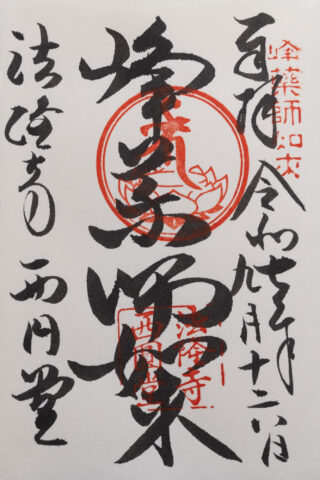 峰藥師如来
奉拝 令和年九月十二日
峯薬師如来
法隆寺
西圓堂
法隆寺 西円堂